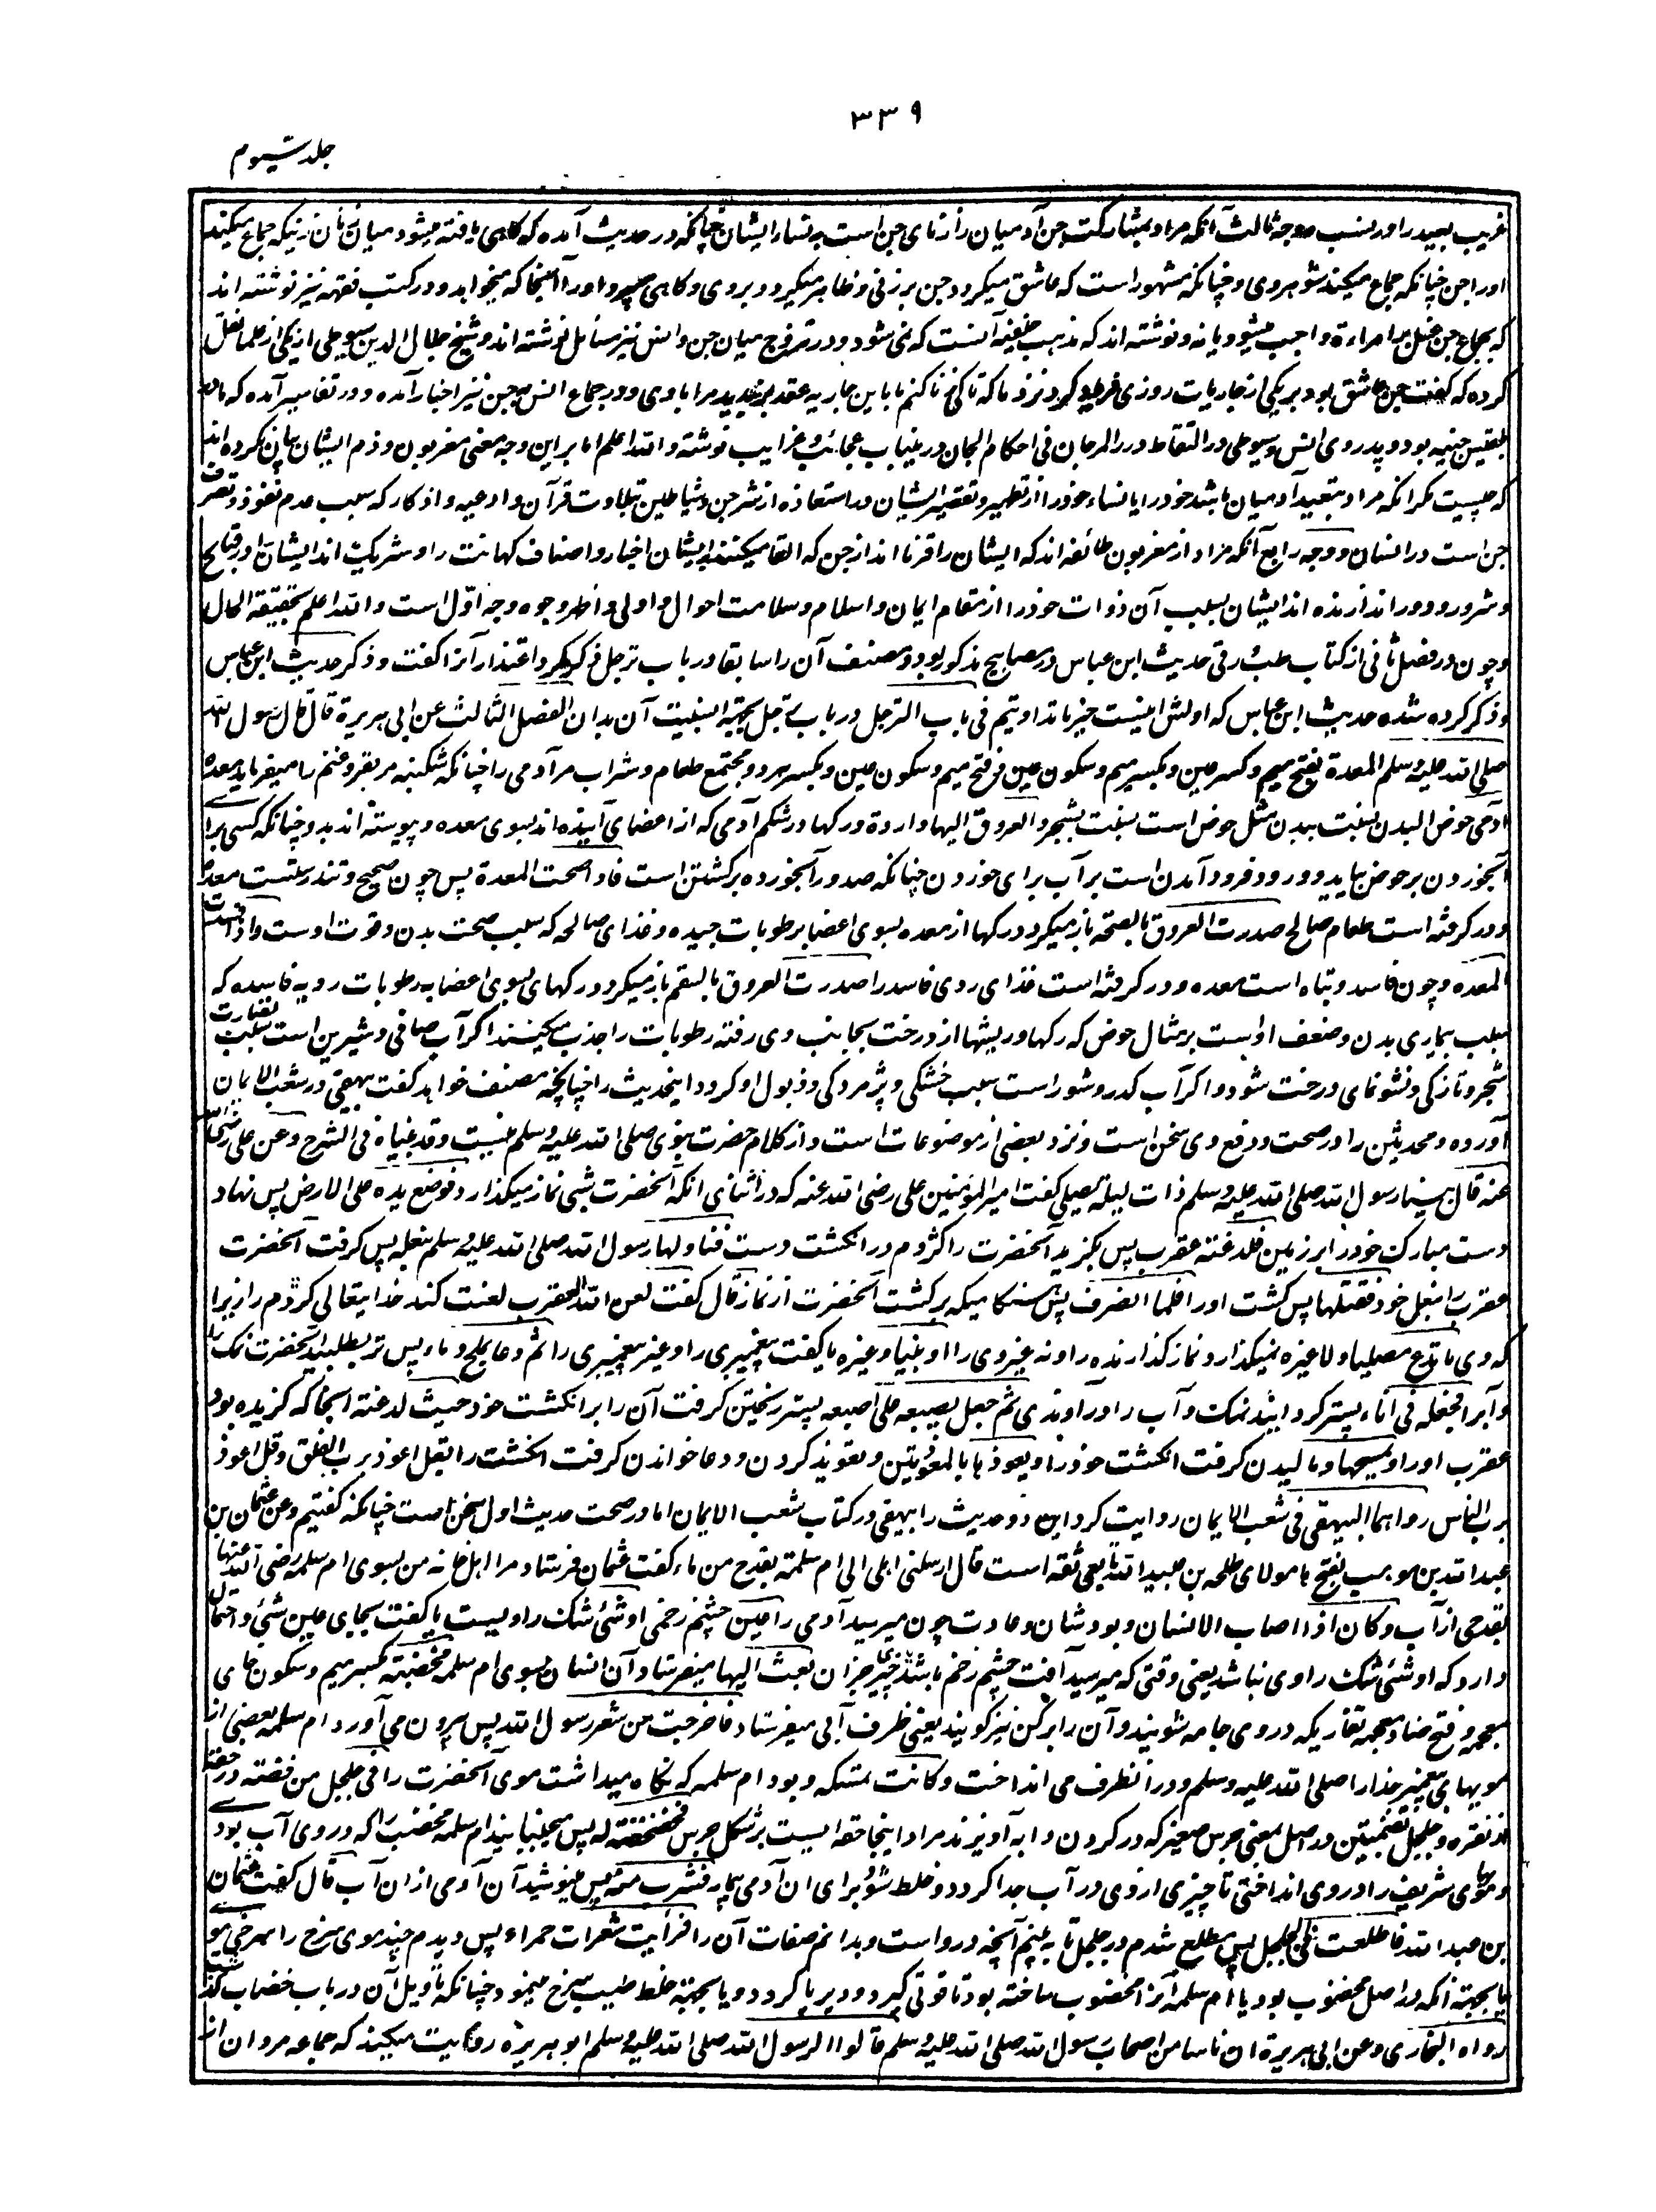 ٣٣٩
جلد سیوم
غریب بعید را در نسب و وجه ثالث آنکه مراد بمشارکت جن آدمیان را زنای جن است به نساء ایشان چنانکه در حدیث آمده که گاهی یافته میشود میان زنان زنیکه جماع میکند
او را جن چنانکه جماع میکند شوهر وی و چنانکه مشهور است که عاشق میگردد جن بر زنی و ظاهر میگردد بروی و گاهی میبرد او را آنجا که میخواهد و در کتب فقهه نیز نوشته اند
که بجماع جن غسل بر امراءة واجب میشود یا نه و نوشته اند که مذهب حنفیه آنست که نمی شود و در تزوج میان جن و انس نیز مسائل نوشته اند و شیخ جلال الدین سیوطی از یکی از علما نقل
کرده که گفت جن عاشق بود بر یکی از جاریات روزی فریاد کرد نزد ما که تا کی زنا کنم با این جاریه عقد بربندید مرا با وی و در جماع انس بجن نیز اخبار آمده و در تفاسیر آمده که مادر
بلقیس جنیه بود و پدر وی انس و سیوطی در التقاط در المرجان فی احکام الجان درین باب عجائب و غرایب نوشته و الله اعلم اما بر این وجه معنی مغربون و ذم ایشان بیان نکرده اند
که چیست مگر آنکه مراد تبعید آدمیان باشد خود را یا نساء خود را از تطهیر و تقصیر ایشان در استعاذه از شر جن و شیاطین بتلاوت قرآن و ادعیه و اذکار که سبب عدم نفوذ و تصرف
جن است در انسان و وجه رابع آنکه مراد از مغربون طائفه اند که ایشان را قرنا اند از جن که القا میکنند بایشان اخبار و اصناف کهانت را و شریک اند ایشان را در قبایح
و شرور و دور اندازنده اند ایشان بسبب آن ذوات خود را از مقام ایمان و اسلام و سلامت احوال و اولی و اظهر وجوه وجه اول است و الله اعلم بحقیقة الحال
و چون در فصل ثانی از کتاب طب و رقی حدیث ابن عباس در مصابیح مذکور بود و مصنف آن را سابقا در باب ترجل ذکر کرد اعتذار آنرا گفت و ذکر حدیث ابن عباس
و ذکر کرده شده حدیث ابن عباس که اولش اینست خیر ما تداویتم فی باب الترجل در باب ترجل بجهة انسبیت آن بدان الفصل الثالث عن ابی هریرة قال قال رسول الله
صلی الله علیه و سلم المعدة بفتح میم و کسر عین و بکسر میم و سکون عین و فتح میم و سکون عین و بکسر هر دو مجتمع طعام و شراب مر آدمی را چنانکه شکنبه مر بقر و غنم را میفرماید معده
آدمی حوض البدن نسبت ببدن مثل حوض است بنسبت بشجر و العروق الیها واردة و رگها در شکم آدمی که از اعضای آینده اند بسوی معده و پیوسته اند بدو چنانکه کسی برای
آبخوردن بر حوض بیاید و ورود فرود آمدن است بر آب برای خوردن چنانکه صدور آبخورده برگشتن است فاذا صحت المعدة پس چون صحیح و تندرستست معده
و در گرفته است طعام صالح صدرت العروق بالصحة باز میگردد رگها از معده بسوی اعضا برطوبات جیده و غذای صالحه که سبب صحت بدن و قوت اوست و اذا فسدت
المعده و چون فاسد و تباه است معده و در گرفته است غذای ردی فاسد را صدرت العروق بالسقم باز میگردد رگهای بسوی اعضا به رطوبات ردیه فاسده که
سبب بیماری بدن و ضعف اوست بر مثال حوض که رگها و ریشها از درخت بجانب وی رفته رطوبات را جذب میکنند اگر آب صافی و شیرین است سبب نضارت
شجر و تازگی و نشونمای درخت شود و اگر آب کدر و شور است سبب خشکی و پژمردگی و ذبول او گردد اینحدیث را چنانچه مصنف خواهد گفت بیهقی در شعب الایمان
آورده و محدثین را در صحت و رفع وی سخن است و نزد بعضی از موضوعات است و از کلام حضرت نبوی صلی الله علیه و سلم نیست و قد بیناه فی الشرح و عن علی رضی الله
عنه قال بینما رسول الله صلی الله علیه و سلم ذات لیلة یصلی گفت امیر المؤمنین علی رضی الله عنه که در اثنای آنکه آنحضرت شبی نماز میگذارد فوضع یده علی الارض پس نهاد
دست مبارک خود را بر زمین فلدغته عقرب پس بگزید آنحضرت را کژدم در انگشت دست فناولها رسول الله صلی الله علیه و سلم بنعله پس گرفت آنحضرت
عقرب را بنعل خود فقتلها پس کشت او را فلما انصرف پس هنگامیکه برگشت آنحضرت از نماز قال گفت لعن الله العقرب لعنت کند خدایتعالی کژدم را زیرا
که وی ما تدع مصلیا و لا غیره نمیگذارد نماز گذارنده را و نه غیر وی را او نبیا و غیره یا گفت پیغمبری را و غیر پیغمبری را ثم دعا بملح و ماء پس تر بطلبید آنحضرت نمک را
و آبرا فجعله فی اناء پس تر گردانید نمک و آب را در آوندی ثم جعل یصبه علی اصبعه پستر ریختن گرفت آن را بر انگشت خود حیث لدغته آنجا که گزیده بود
عقرب او را و یمسحها و مالیدن گرفت انگشت خود را و یعوذها بالمعوذتین و تعویذ کردن و دعا خواندن گرفت انگشت را بقل اعوذ برب الفلق و قل اعوذ
برب الناس رواهما البیهقی فی شعب الایمان روایت کرد این دو حدیث را بیهقی در کتاب شعب الایمان اما در صحت حدیث اول سخن ناست چنانکه گفتیم و عن عثمان بن
عبدالله بن موهب بفتح ها مولای طلحه بن عبیدالله تابعی ثقه است قال ارسلنی اهلی الی ام سلمة بقدح من ماء گفت عثمان فرستاد مرا اهل خانه من بسوی ام سلمه رضی الله عنها
بقدحی از آب و کان اذا اصاب الانسان و بود شان و عادت چون میرسید آدمی را عین چشم زخمی او شئ شک راویست یا گفت بجای عین شئ و احتمال
دارد که او شئ شک راوی نباشد یعنی وقتی که میرسید آفت چشم زخم باشد یا چیزی جز آن بعث الیها میفرستاد آن انسان بسوی ام سلمه مخضبة بکسر میم و سکون خای
معجمه و فتح ضاد معجمه تغاریکه در وی جامه شویند و آن را برکن نیز گویند یعنی ظرف آبی میفرستاد فاخرجت من شعر رسول الله پس بیرون می آورد ام سلمه بعضی از
مویهای پیغمبر خدا را صلی الله علیه و سلم و در انظرف می انداخت و کانت تمسکه و بود ام سلمه که نگاه میداشت موی آنحضرت را فی جلجل من فضته در حقه
از نقره و جلجل بضمتین در اصل بمعنی جرس صغیر که در گردن دابه آویزند مراد اینجا حقه ایست بر شکل جرس فخضخضته له پس میجنبانید ام سلمه مخضب را که در وی آب بود
و موی شریف را در وی انداختی تا چیزی از وی در آب جدا گردد و خلط شود برای آن آدمی بیمار فشرب منه پس مینوشید آن آدمی از ان آب قال گفت عثمان
بن عبدالله فاطلعت فی الجلجل پس مطلع شدم در جلجل تا به بینم آنچه در وا ست و بدانم صفات آن را فرأیت شعرات حمراء پس دیدم چند موی سرخ را سرخی مو
یا بجهة آنکه در اصل مخضوب بود یا ام سلمه آنرا مخضوب ساخته بود تا قوتی گیرد و دیر پا گردد و یا بجهة خلط طیب سرخ مینمود چنانکه تاویل آن در باب خضاب گذشت
رواه البخاری و عن ابی هریرة ان ناسا من اصحاب رسول الله صلی الله علیه و سلم قالوا لرسول الله صلی الله علیه و سلم ابو هریره روایت میکند که جماعه مردان از